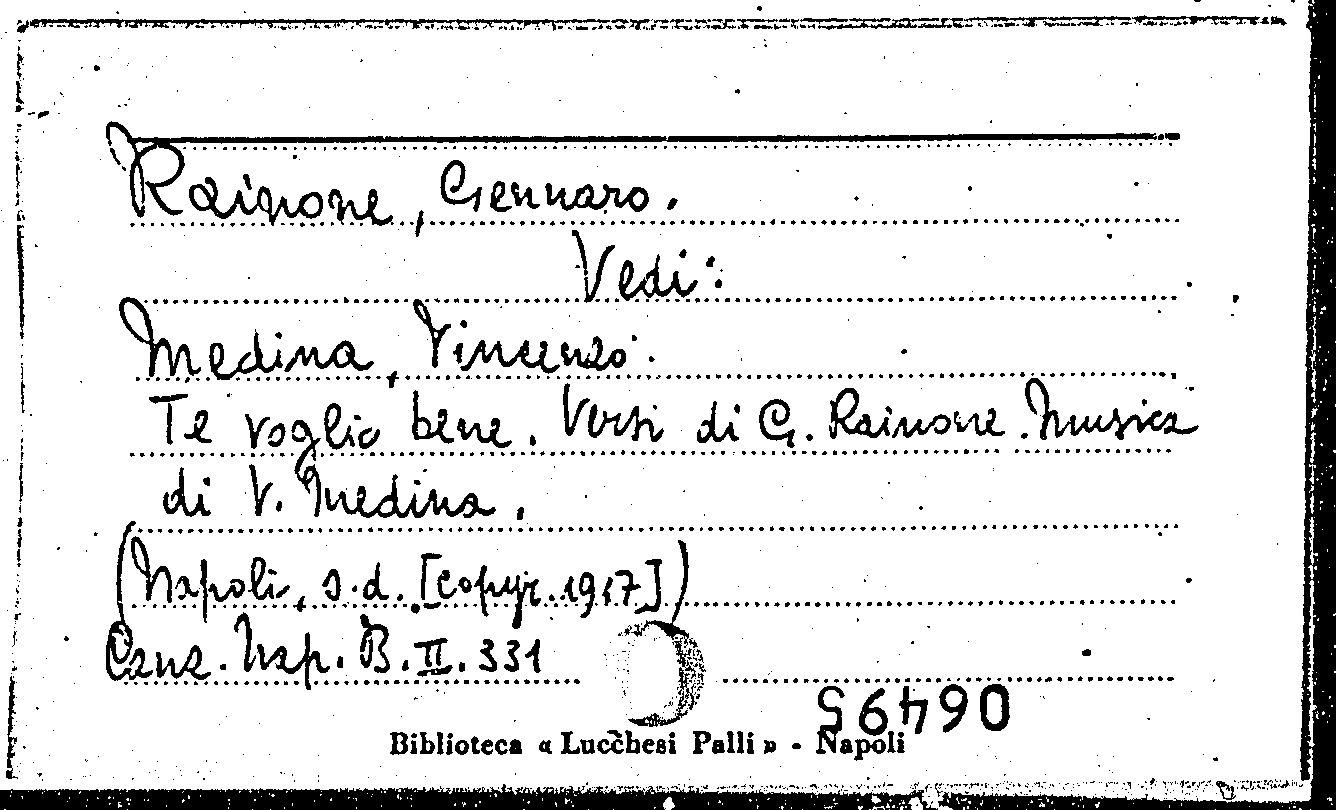 Rainone, Gennaro.
Vedi:
Medina, Vincenzo.
Te voglio bene. Versi di G. Rainone. Musica
di V. Medina.
(Napoli, s.d. [copyr. 1917])
Canz. Nap. B. II. 331
06495
Biblioteca « Lucchesi Palli » - Napoli